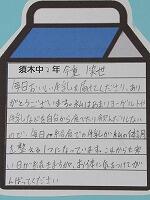 須木中2年
毎日おいしい牛乳を届けてくださり、あり
がとうございます。私はあまりヨーグルトや
牛乳などを自分から食べたり飲んだりしない
ので、毎日の給食での牛乳が私の体調
を整える1つとなっています。これからも寒
い日が続きますが、お体に気をつけてが
んばってください